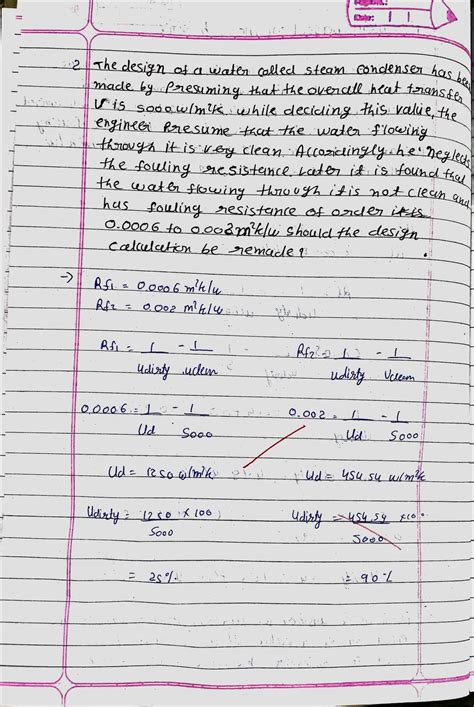 Date:
2 The design of a water colled steam condenser has been
made by presuming that the overall heat transfer
U is 5000 w/m²k while deciding this value, the
engineer Presume that the water flowing
through it is very clean. Accordingly he neglects
the fouling resistance. Later it is found that
the water flowing through it is not clean and
has fouling resistance of order it is
0.0006 to 0.002 m²k/w should the design
calculation be remade?
→ Rf1 = 0.0006 m²k/w
Rf2 = 0.002 m²k/w
Rf1 = 1/Udirty - 1/Uclean Rf2 = 1/Udirty - 1/Uclean
0.0006 = 1/Ud - 1/5000 0.002 = 1/Ud - 1/5000
Ud = 1250 w/m²k Ud = 454.54 w/m²k
Udirty = 1250/5000 × 100 Udirty = 454.54/5000 × 100
= 25% = 90%